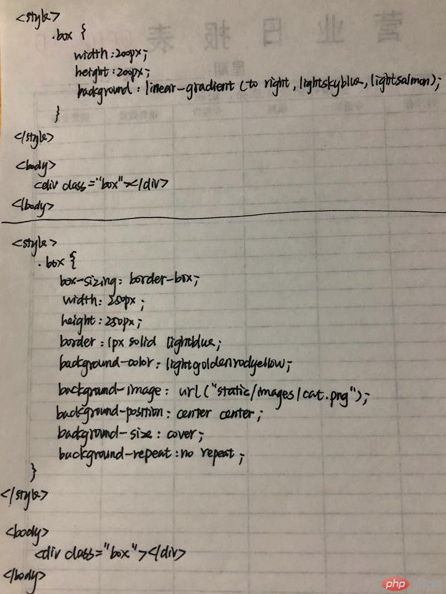 营业日报表
<style>
.box {
width:200px;
height:200px;
background:linear-gradient(to right,lightskyblue,lightsalmon);
}
</style>
<body>
<div class="box"></div>
</body>
<style>
.box {
box-sizing: border-box;
width: 250px;
height: 250px;
border: 1px solid lightblue;
background-color: lightgoldenrodyellow;
background-image: url("static/images/cat.png");
background-position: center center;
background-size: cover;
background-repeat: no repeat;
}
</style>
<body>
<div class="box"></div>
</body>
php